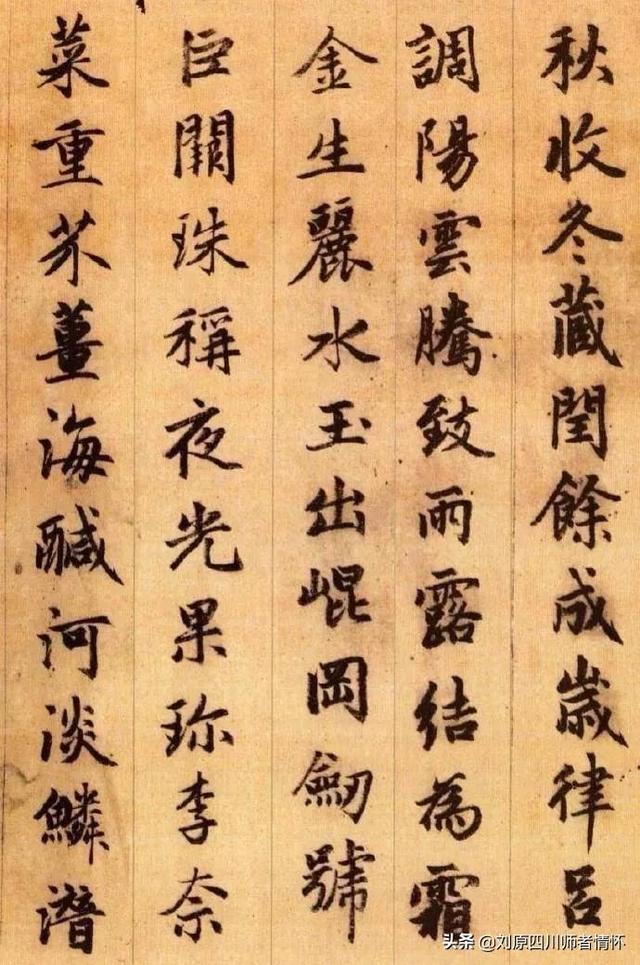 秋收冬蔵閏餘成歲律呂
調陽雲騰致雨露結為霜
金生麗水玉出崐岡劒號
巨闕珠稱夜光果珎李奈
菜重芥薑海醎河淡鱗潛
头条 @刘原四川师者情怀